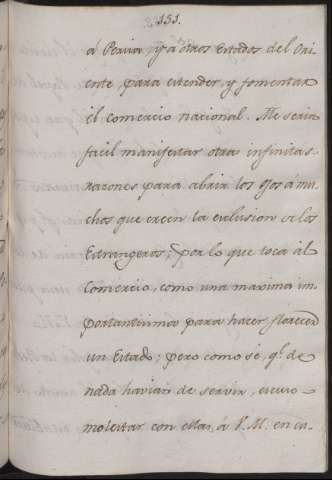 151.
á Persia y á otros Estados del Ori
ente, para extender, y fomentar
el comercio nacional. Me seria
facil manifestar otra infinitas
razones para abrir los ojos á mu
chos que creen la exclusion de los
Estrangeros, por lo que toca al
Comercio, como una maxima im
portantissima para hacer florecer
un Estado; pero como se, q.e de
nada havian de servir, escuso
molestar con ellas, á V. M. en ca-